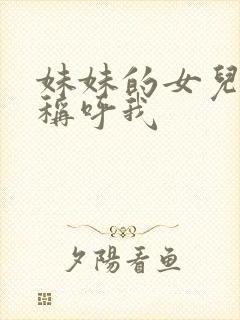 妹妹的女兒
稱呼我
夕陽看鱼